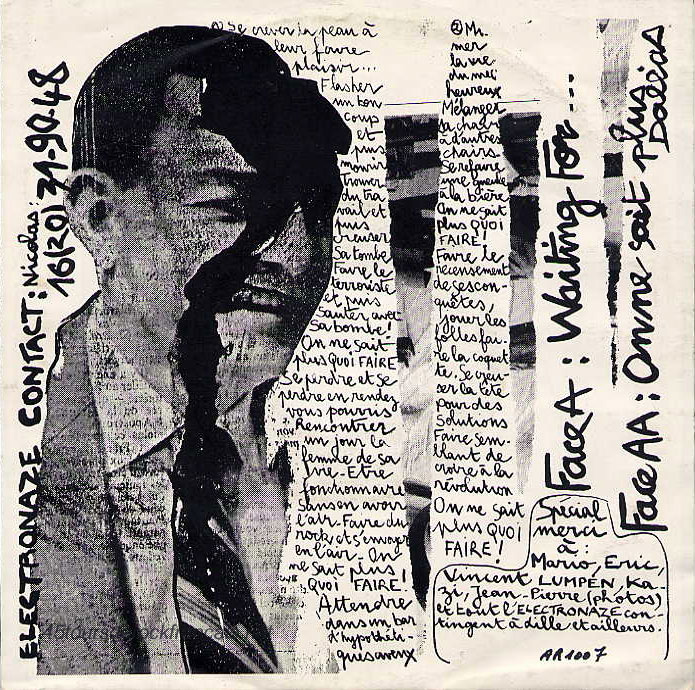 ELECTRONAZE CONTACT: Nicolas:
16(20) 31-90-48
① Se crever la peau à
leur faire
plaisir...
Flasher
un bon
coup
et
puis
mourir
Trouver
du tra
vail et
puis
creuser
Sa tombe
Faire le
terroriste
et puis
Sauter avec
Sa bombe!
On ne sait
plus QUOI FAIRE
Se perdre et se
perdre en rendez
vous pourris
Rencontrer
un jour la
femme de sa
Vie - Etre
fonctionnaire
Sans en avoir
l'air - Faire du
rock et s'envoyer
en l'air - On
ne sait plus
QUOI FAIRE!
Attendre
dans un bar
d'hypothéti-
ques aveux
② Mi
mer
la vie
du mec
heureux
Mélanger
sa chair
à d'autres
chairs.
Se refaire
une gueule
à la bière
On ne sait
plus QUOI
FAIRE!
Faire le
recensement
de ses con-
quêtes,
jouer les
folles fai-
re la coquet
te. Se creu-
ser la tête
pour des
Solutions
Faire sem-
blant de
croire à la
révolution
On ne sait
plus QUOI
FAIRE!
Face A: Waiting For...
Face AA: On ne sait plus
Dallas
Spécial
merci
à:
Mario, Eric,
Vincent LUMPEN, Ka-
zi, Jean-Pierre (photos)
et tout l'ELECTRONAZE con-
tingent à dille et ailleurs.
AR1007